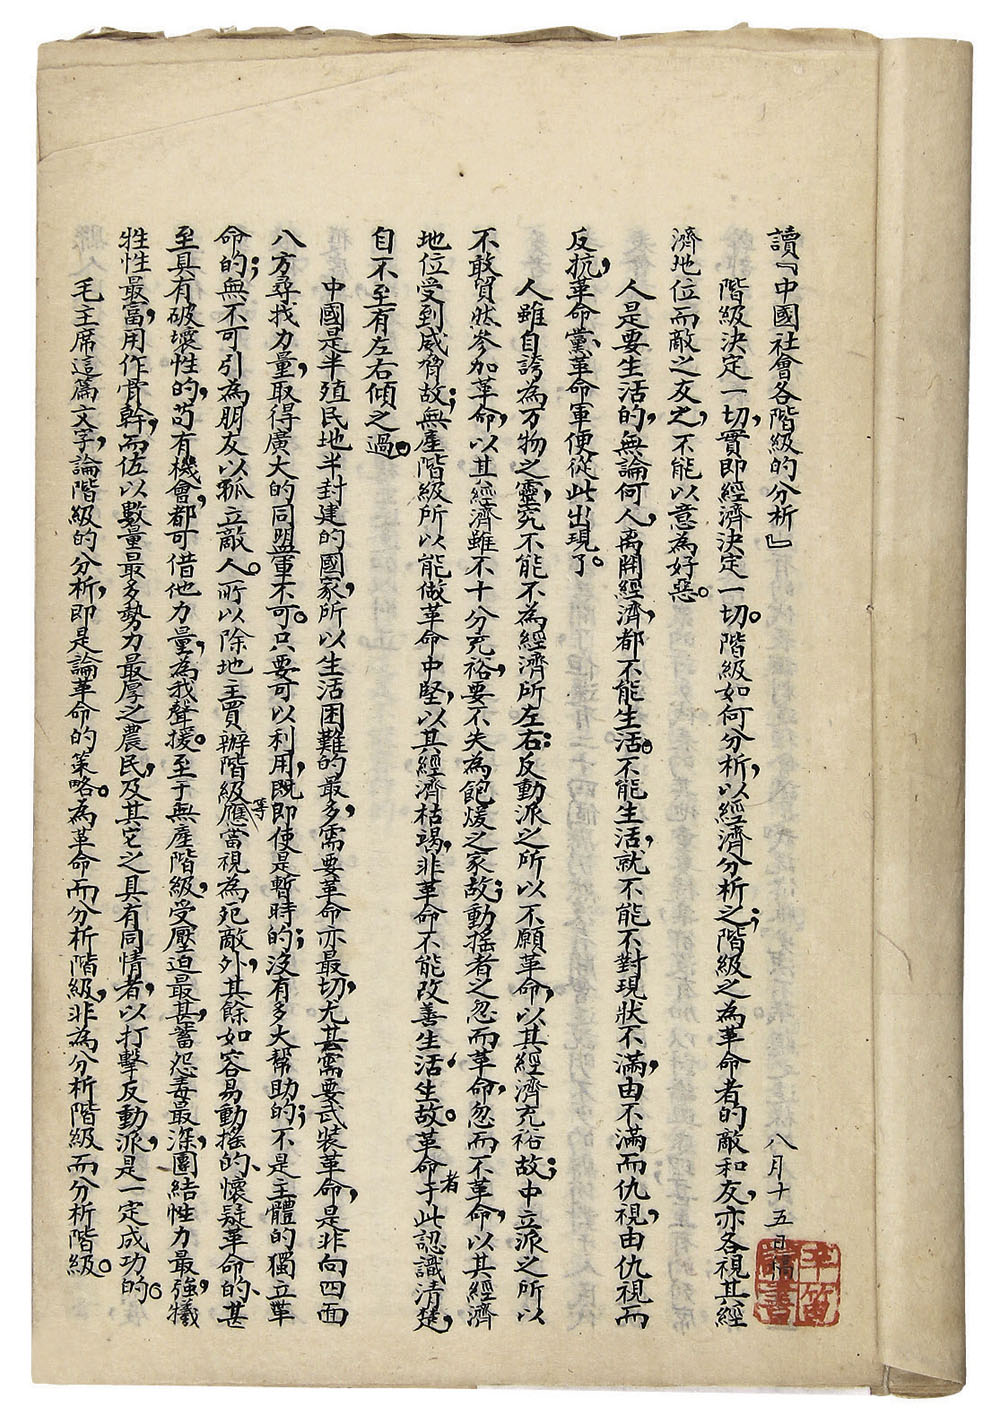 讀『中國社會各階級的分析』　八月十五日稿
階級決定一切，實即經濟決定一切。階級如何分析，以經濟分析之；階級之為革命者的敵和友，亦各視其經
濟地位而敵之友之，不能以意為好惡。
人是要生活的，無論何人，离開經濟，都不能生活。不能生活，就不能不對現狀不滿，由不滿而仇視，由仇視而
反抗，革命黨、革命軍便從此出現了。
人雖自誇為万物之靈，究不能不為經濟所左右；反動派之所以不願革命，以其經濟充裕故；中立派之所以
不敢貿然參加革命，以其經濟雖不十分充裕，要不失為飽煖之家故；動搖者之忽而革命，忽而不革命，以其經濟
地位受到威脅故；無產階級所以能做革命中堅，以其經濟枯竭，非革命不能改善生活、生故。革命者于此認識清楚，
自不至有左右傾之過。
中國是半殖民地半封建的國家，所以生活困難的最多，需要革命亦最切，尤其需要武裝革命，是非向四面
八方尋找力量，取得廣大的同盟軍不可。只要可以利用，既即使是暫時的；沒有多大幫助的；不是主體的獨立革
命的；無不可引為朋友以孤立敵人。所以除地主買辦階級等應當視為死敵外，其餘如容易動搖的、懷疑革命的、甚
至具有破壞性的，苟有機會，都可借他力量，為我聲援。至于無產階級，受壓迫最甚，蓄怨毒最深，團結性力最強，犧
牲性最富，用作骨幹，而佐以數量最多勢力最厚之農民，及其它之具有同情者，以打擊反動派，是一定成功的。
毛主席這篇文字，論階級的分析，即是論革命的策略。為革命而分析階級，非為分析階級而分析階級。